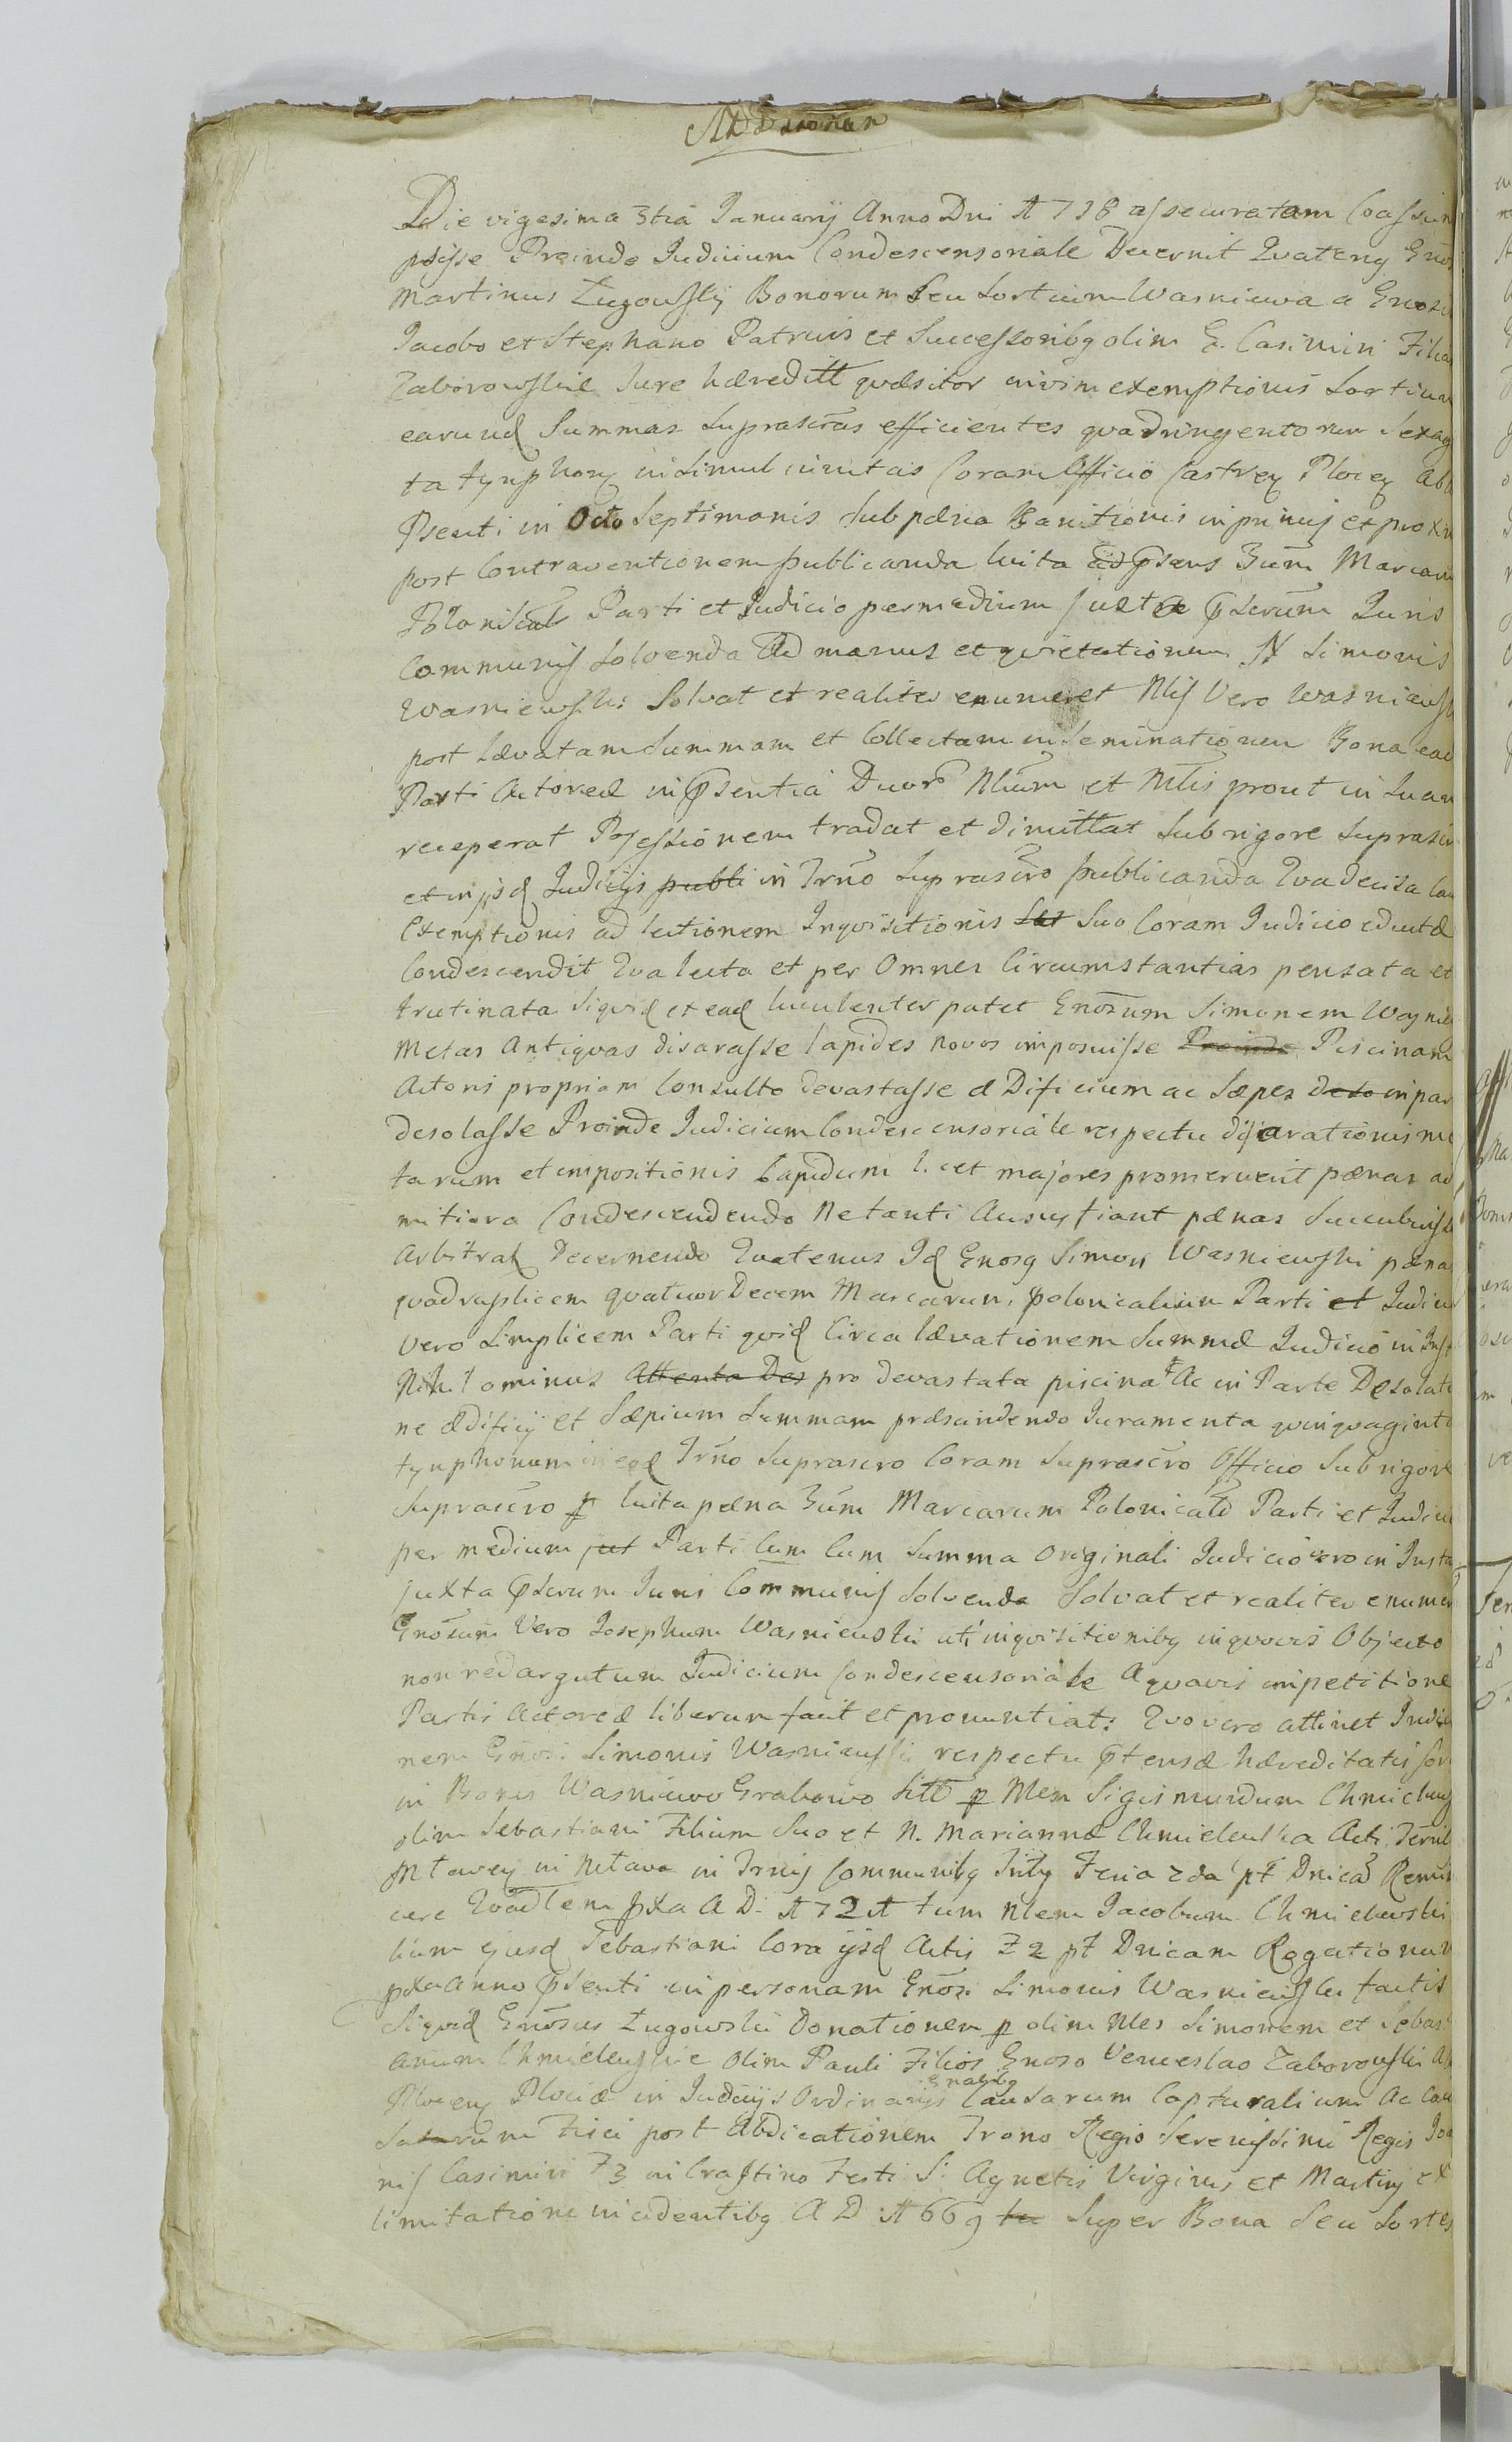 Die vigesima 3tia Januarij Anno Dni 1718 assecuratam Coassum
psisse Proinde Judicium Condescensoriale Decernit Quateng Gnos
Martinus Zugowskj Bonorum Seu Sortium Wasniewa a Gnoso
Jacobo et Stephano Patruis et Successoribg olim G. Casimiri Filio
Zaborowskie Jure hæreditt quæsitor exemptionis Sortium
earund Summas Suprascras efficientes quadringentorum Sexag
ta tynphonz insimul Coram Officio Castren Plocen Ab
Psenti in Octo Septimanis Sub pæna Banitionis in primis et proxi
post Contraventionem publicanda luita 3um Marcarum
Polonical Parti et Judicio per medium juxta pscrum Juris
Communis Solvenda Ad manus et quietationem N Simonis
Wasniewski Solvat et realiter enumeret Nlis Vero Wasniews
post Lævatam Summam et Collectam inseminationem Bona ead
Parti Actoreæ in psentia Duor Nlium et Mtlis prout in Suam
receperat Possessionem tradat et dimittat Sub rigore Suprascr
et in ijsd Judicijs publi in Trno Suprascro publicanda Qua decisa Cau
Exemptionis ad lectionem Inqvisitionis Suo Coram Judicio eductæ
Condescendit Qua lecta et per Omnes Circumstantias pensata et
trutinata Siqvid et ead luculenter patet Gnosum Simonem Wasnie
Metas Antiqvas disarasse lapides novos imposuisse Proinde Piscinam
Actoris propriam Consulto devastasse æDificium ac Sæpes Deso in par
desolasse Proinde Judicium Condescensoriale respectu disarationis me
tarum et impositionis Lapidum licet majores promeruerit pænas ad
mitiora Condescendendo Ne tanti Ausus fiant pænas Succubuisse
Arbitrat Decernendo Quatenus Id Gnosg Simon Wasniewski pæna
qvadruplicem qvatuorDecem Marcarum polonicalium Parti et Judicio
vero Simplicem Parti qvid Circa lævationem Summæ Judicio in Inst
Nihilominus Attenta Des pro devastata piscina Ac in Parte Desolati
ne ædificij et Sæpium Summam præscindendo Juramenta qvinqvaginta
tynphonum in eod Trno Suprascro Coram Suprascro Officio Sub rigore
Suprascro p luita pæna 3um Marcarum Polonical Parti et Judicio
per medium jut Parti Cum Cum Summa Originali Judicio vero in Insta
juxta pscrum Juris Communis Solvenda Solvat et realiter enumer
Gnosum Vero Josephum Wasniewski uti inqvisitionibg in qvovis Objecto
non redargutum Judicium Condescensoriale A qvavis impetitione
Partis Actoreæ liberum facit et pronuntiat: Qvo vero attinet Indu
nem Gnosi Simonis Wasniewski respectu ptensæ hæreditatis sor
in Bonis Wasniewo Grabowo Sitt p Nlem Sigismundum Chmielews
olim Sebastiani Filium Suo et N. Mariannæ Chmielewska Acti Terril
Mlaven in Mlava in Trnis Communibg Tritg Feria 2da pt Dnica Remin
cere Quadlem pxa A D. 1721 tum Nlem Jacobum Chmielewski
lium ejusd Sebastiani Cora ijsd Actis F 2 pt Dnicam Rogationum
pxa Anno psenti in personam Gnosi Simonis Wasniewski factis
Siqvid Gnosus Zugowski Donationem p olim Nles Simonem et Sebas
anum Chmielewskie olim Pauli Filios Gnoso Venceslao Zaborowski
Plocen Plociæ in Judicijs Ordinarijs Gnalibg Causarum Capturalium Ac Cau
Sarum Fisci post Abdicationem Trono Regio Serenissimi Regis Joa
nis Casimiri F 3 in Crastino Festi S. Agnetis Virginis et Martiris ex
limitatione incidentibg A D 1669 Super Bona Seu Sortes